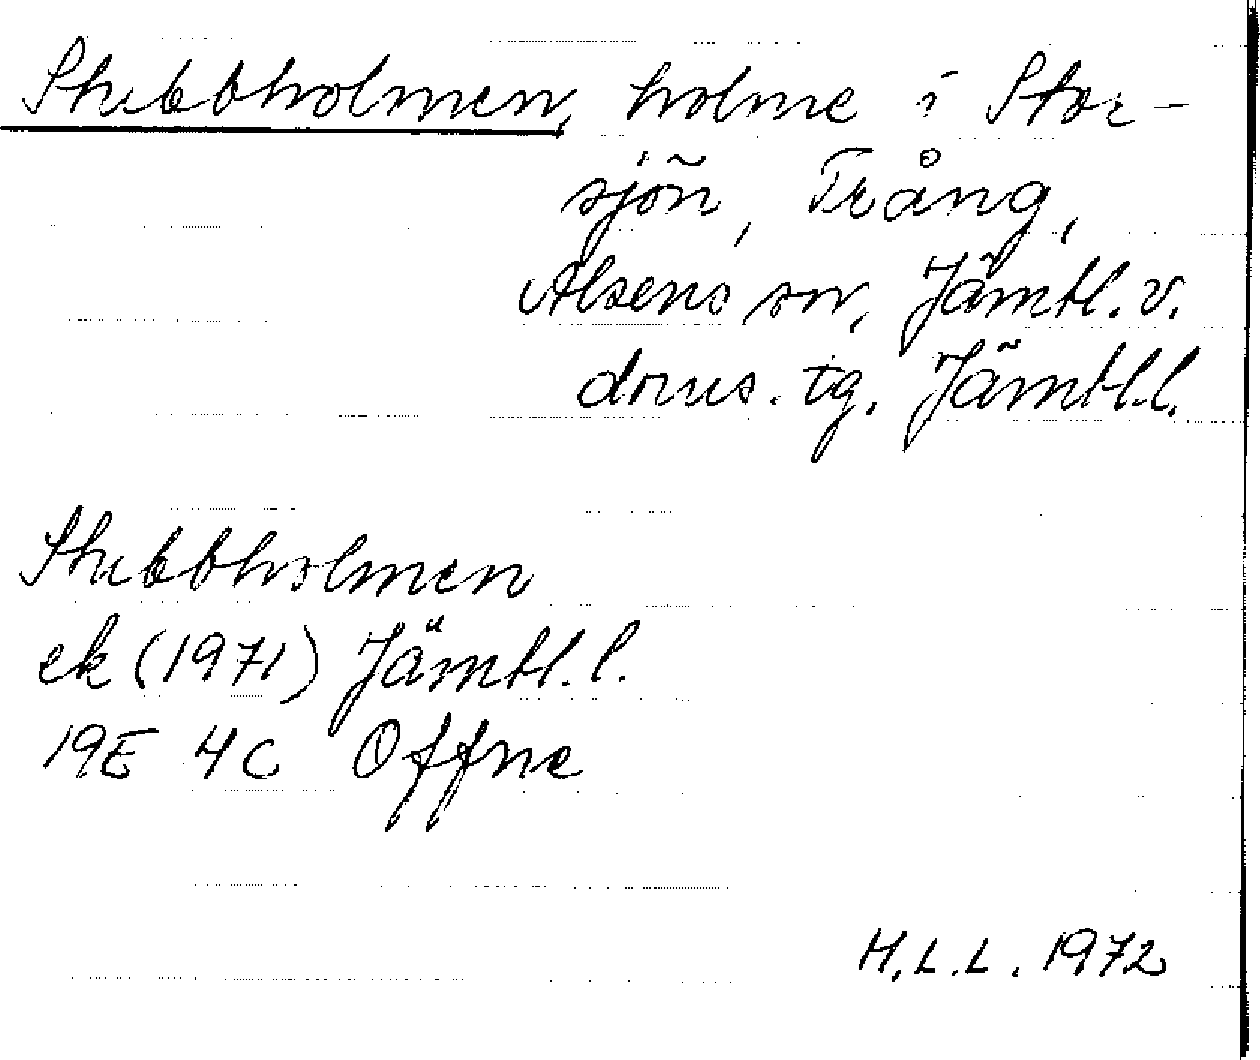 Stubbholmen, holme i Stor-
sjön, Trång,
Alsens sn, Jämtl. v.
doms. tg. Jämtl. l.
Stubbholmen
ek (1971) Jämtl. l.
19E 4C Offne
H.L.L. 1972